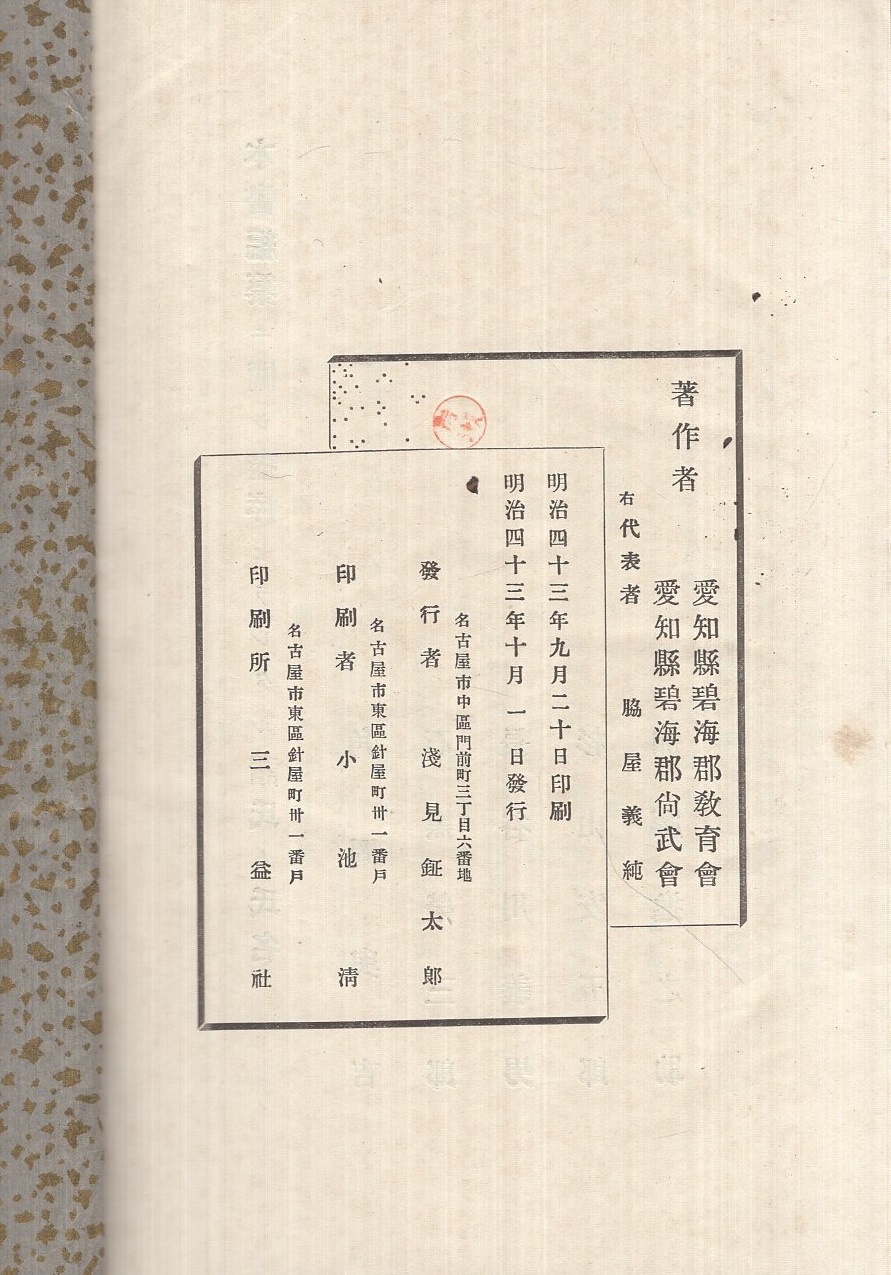 著作者
愛知縣碧海郡教育會
愛知縣碧海郡尙武會
右代表者 脇屋義純
明治四十三年九月二十日印刷
明治四十三年十月一日發行
名古屋市中區門前町三丁目六番地
發行者 淺見鉦太郎
名古屋市東區針屋町卅一番戶
印刷者 小池淸
名古屋市東區針屋町卅一番戶
印刷所 三益社